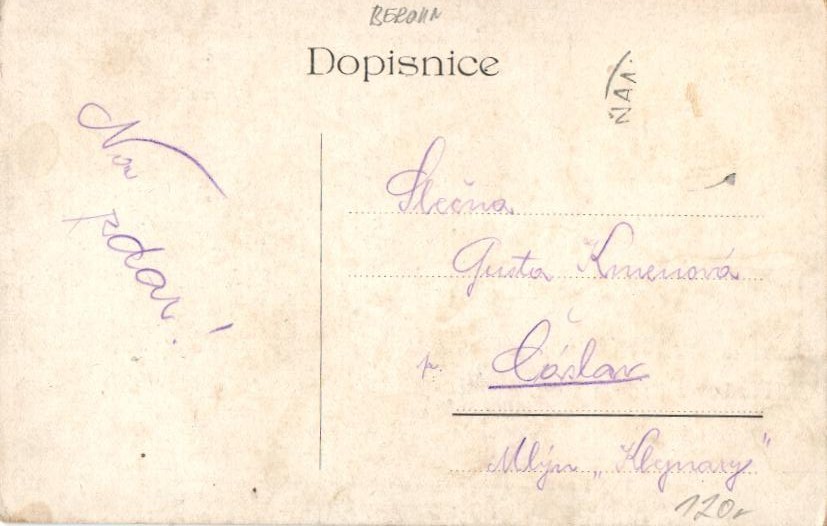 BEROUN
Dopisnice
NÁM.
Na
zdar!
Slečna
Gusta Kmenová
p. Čáslav
Mlýn „
120,-